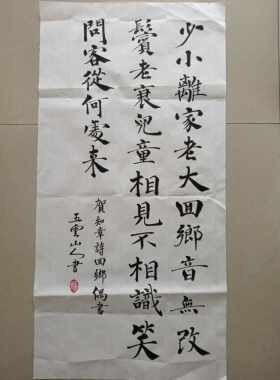 少小離家老大囬鄉音無改
鬢老衰兒童相見不相識笑
問客從何處来
賀知章詩囬鄉偶書
五雲山人書